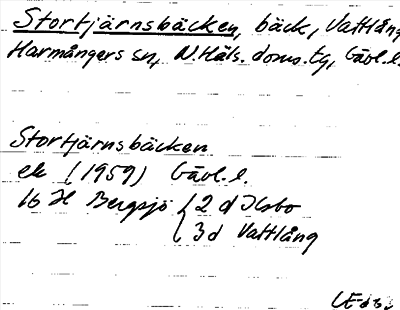 Stortjärnsbäcken, bäck, Vattlång
Harmångers sn, N. Häls. doms. tg, Gävl. l.
Stortjärnsbäcken
ek (1959) Gävl. l.
16 H Bergsjö { 2 d Ilsbo
3 d Vattlång